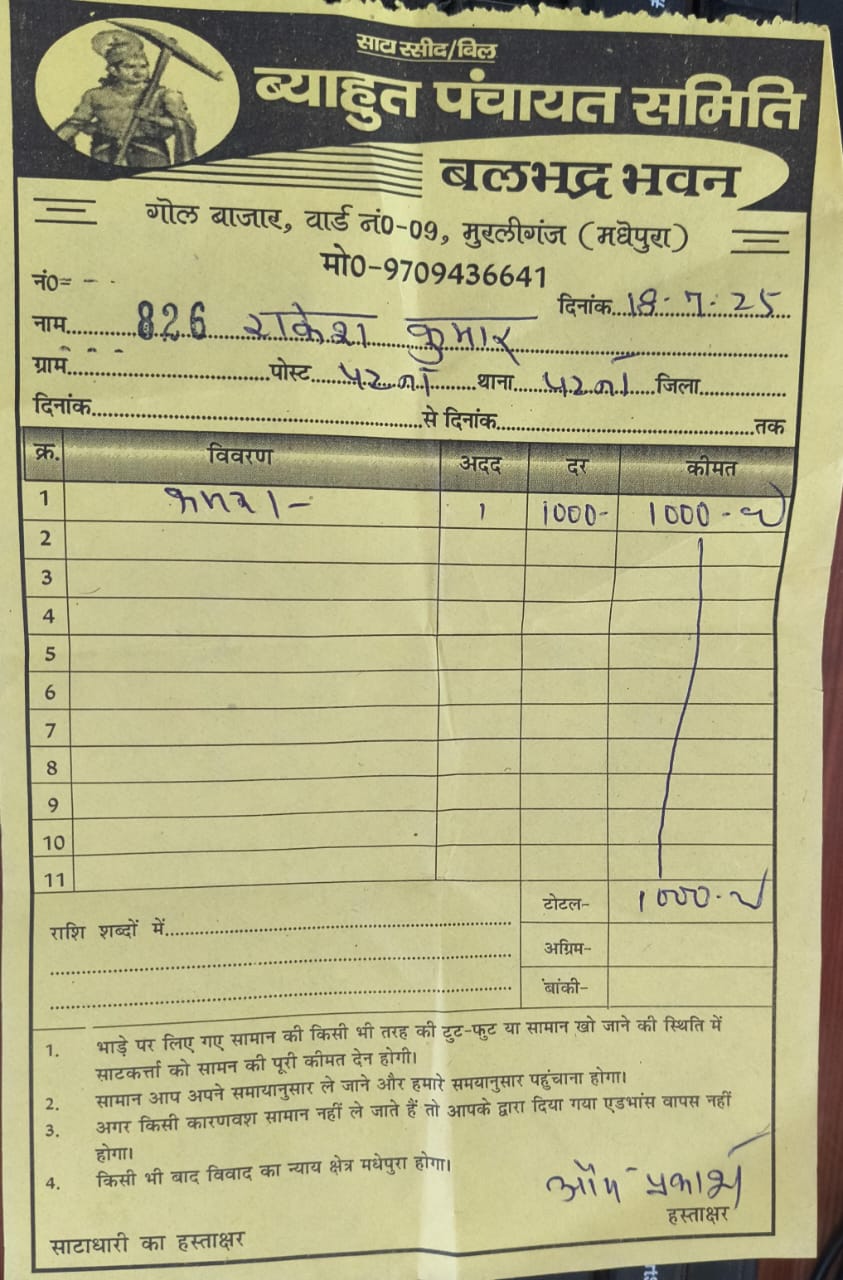 साटा रसीद/बिल
ब्याहुत पंचायत समिति
बलभद्र भवन
गोल बाजार, वार्ड नं0-09, मुरलीगंज (मधेपुरा)
मो0-9709436641
नं0= - -
दिनांक 18-7-25
नाम 826 राकेश कुमार
ग्राम पोस्ट पटना थाना पटना जिला
दिनांक से दिनांक तक
क्र. विवरण अदद दर कीमत
1 कमरा- 1 1000- 1000-
2
3
4
5
6
7
8
9
10
11
टोटल- 1000-
राशि शब्दों में
अग्रिम-
बांकी-
1. भाड़े पर लिए गए सामान की किसी भी तरह की टुट-फुट या सामान खो जाने की स्थिति में
साटकर्त्ता को सामन की पूरी कीमत देन होगी।
2. सामान आप अपने समायानुसार ले जाने और हमारे समयानुसार पहुंचाना होगा।
3. अगर किसी कारणवश सामान नहीं ले जाते हैं तो आपके द्वारा दिया गया एडभांस वापस नहीं
होगा।
4. किसी भी बाद विवाद का न्याय क्षेत्र मधेपुरा होगा।
ओम प्रकाश
हस्ताक्षर
साटाधारी का हस्ताक्षर